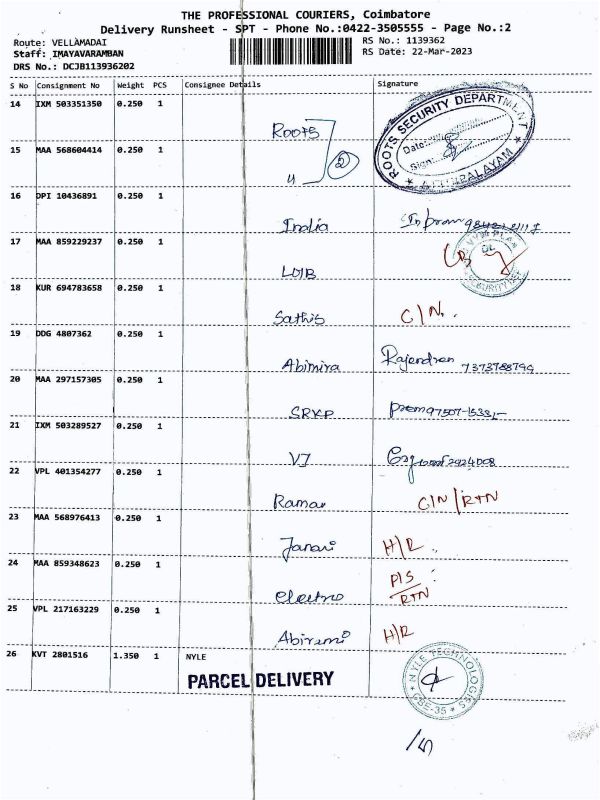 THE PROFESSIONAL COURIERS, Coimbatore
Delivery Runsheet - SPT - Phone No.:0422-3505555 - Page No.:2
Route: VELLAMADAI RS No.: 1139362
Staff: IMAYAVARAMBAN RS Date: 22-Mar-2023
DRS No.: DCJB113936202
S No Consignment No Weight PCS Consignee Details Signature
14 IXM 503351350 0.250 1 Roots ROOTS SECURITY DEPARTMENT
Date:
Sign:
15 MAA 568604414 0.250 1 2
16 DPI 10436891 0.250 1 India
17 MAA 859229237 0.250 1
18 KUR 694783658 0.250 1 Sathis C/N.
19 DDG 4807362 0.250 1 Abimira Rajendran 7373788794
20 MAA 297157305 0.250 1 SRKP
21 IXM 503289527 0.250 1 VJ
22 VPL 401354277 0.250 1 Raman C/N/RTN
23 MAA 568976413 0.250 1 Janani H/R
24 MAA 859348623 0.250 1 electro P/S
RTN
25 VPL 217163229 0.250 1 Abirami H/R
26 KVT 2801516 1.350 1 NYLE NYLE TECHNOLOGIES
CBE-35
PARCEL DELIVERY